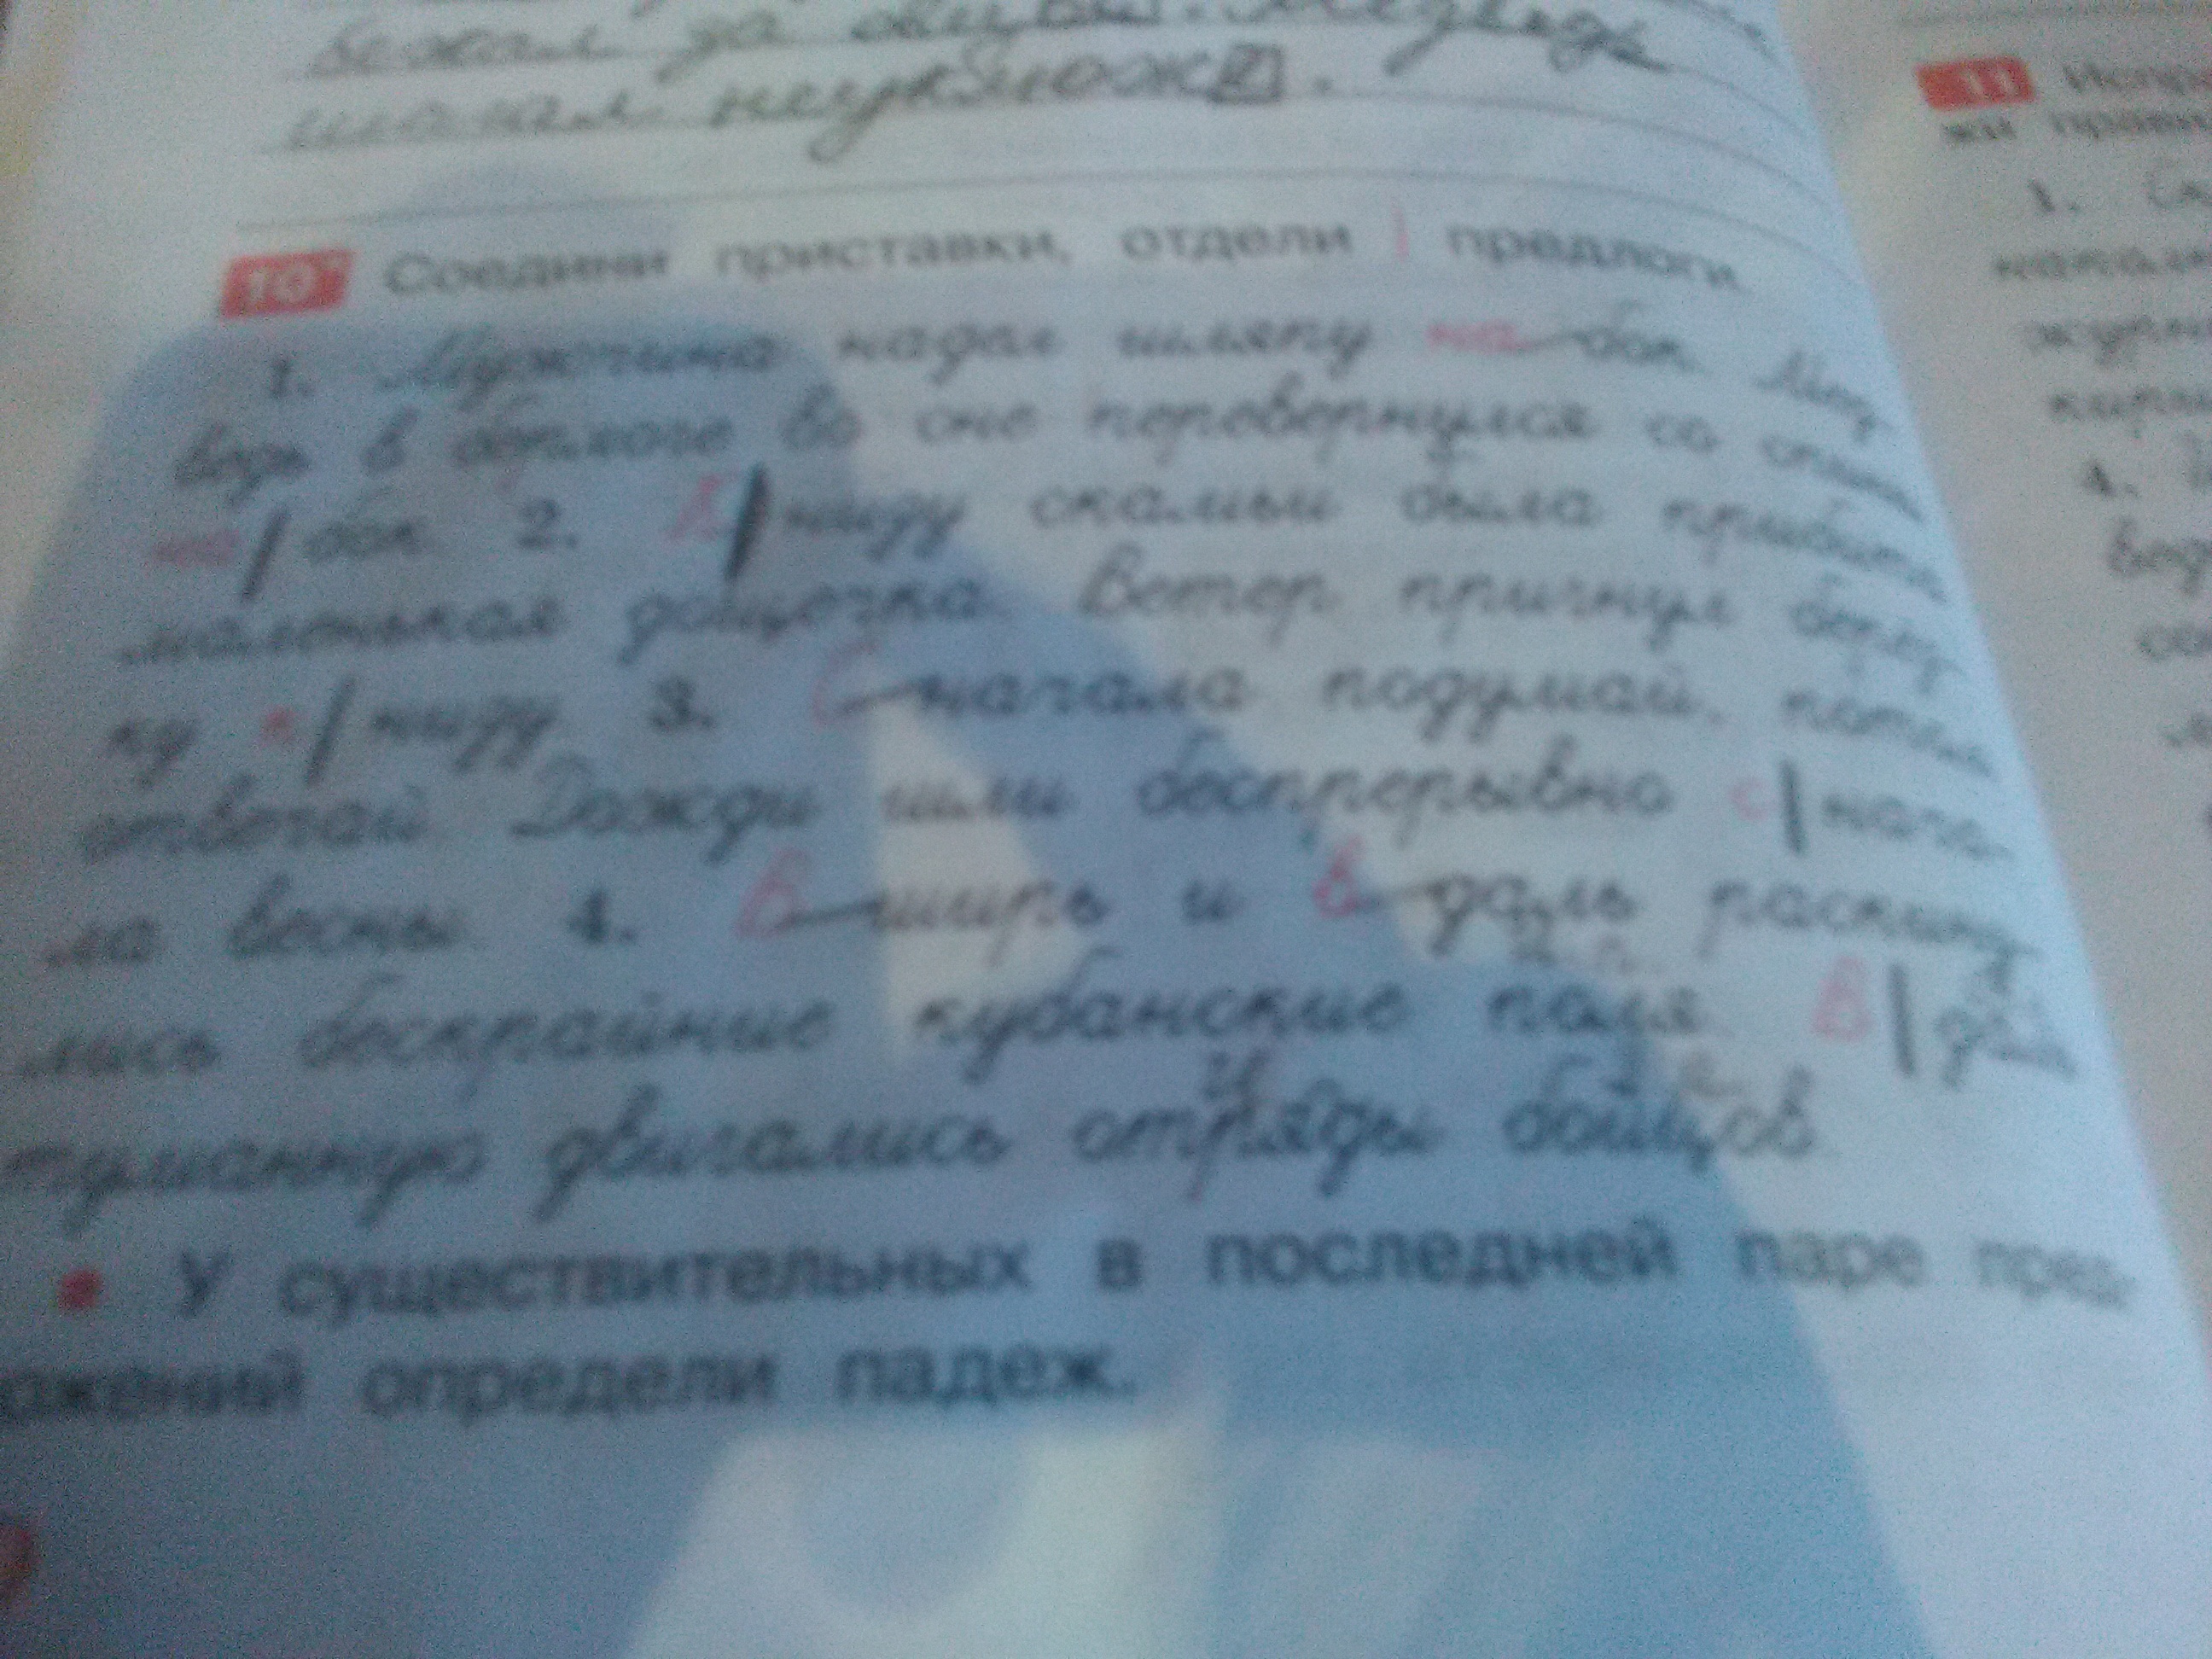 бежал за
шагал неуклюже.
10 Соедини приставки, отдели | предлоги.
1. Мужчина надел шляпу на бок. Мед
ведь в берлоге во сне перевернулся со спины
на|бок. 2. К|низу скамьи была прибита
маленькая дощечка. Ветер пригнул
ку к|низу. 3. С начала подумай, потом
отвечай. Дожди шли беспрерывно с|нача
ла весны. 4. В ширь и в даль раскину
лись бескрайние кубанские поля. В|даль
туманную двигались отряды бойцов.
У существительных в последней паре пред-
ожений определи падеж.
11
1.
4.